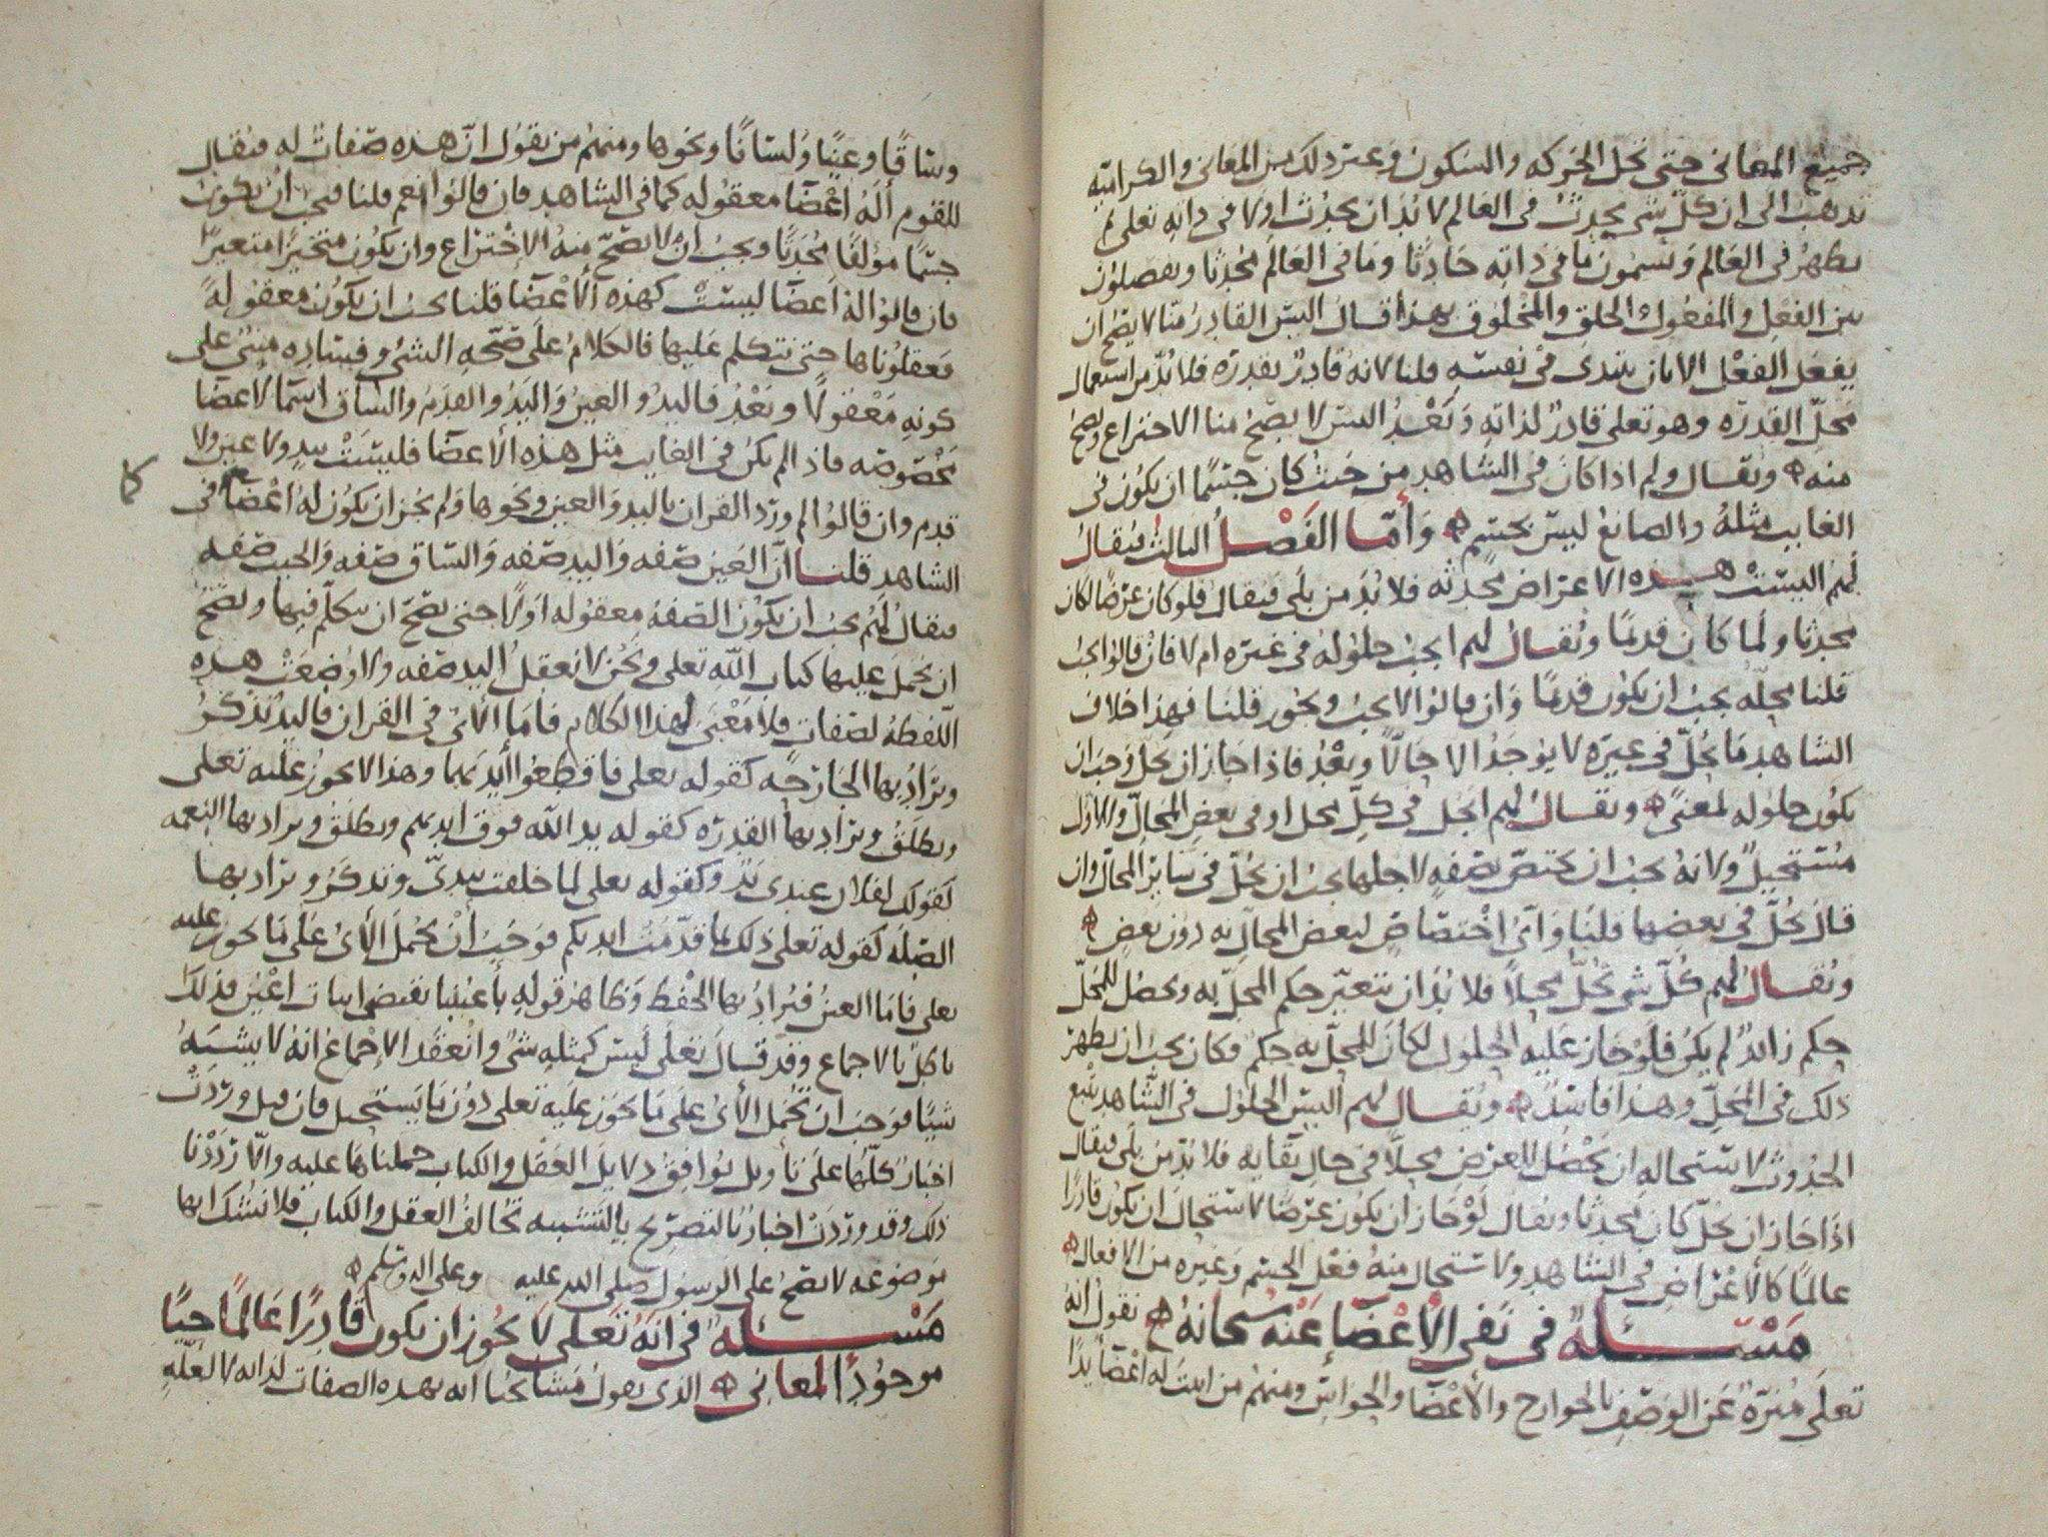 جميع المعاني حتى تحل الحركه والسكون وغير ذلك من المعاني والكراميه
تذهب الى ان كل شي يحدث في العالم لا بد ان يحدث اولا في ذاته تعلى ثم
يظهر في العالم ويسمون ما في ذاته حادثا وما في العالم محدثا ويفصلون
بين الفعل والمفعول والخلق والمخلوق بهذا قال اليس القادر منا لا يصح ان
يفعل الفعل الا بان يبتدي في نفسه قلنا لانه قادر بقدره فلا بد من استعمال
محل القدره وهو تعلى قادر لذاته وبعد اليس لا يصح منا الاختراع ويصح
منه ويقال ولم اذا كان في الشاهد من حيث كان جسما ان يكون في
الغايب مثله والصانع ليس بجسم وأما الفصل الثالث فيقال
لهم اليست هذه الاعراض محدثه فلا بد من بلى فيقال فلو كان عرضا لكان
محدثا ولما كان قديما ويقال لهم ايجب حلوله في غيره ام لا فان قالوا يجب
قلنا محله يجب ان يكون قديما وان قالوا لا يجب ويجوز قلنا فهذا خلاف
الشاهد ما يحل في غيره لا يوجد الا حالا وبعد فاذا جاز ان يحل وجب ان
يكون حلوله لمعنى ويقال لهم ايحل في كل محل او في بعض المحال والاول
مستحيل ولانه يجب ان يختص بصفه لاجلها يجب ان يحل في ساير المحال وان
قال يحل في بعضها قلنا واي اختصاص لبعض المحال به دون بعض
ويقال لهم كل شي يحل محلا فلا بد ان يتغير حكم المحل به ويحصل للمحل
حكم زايد لم يكن فلو جاز عليه الحلول لكان للمحل به حكم وكان يجب ان يظهر
ذلك في المحل وهذا فاسد ويقال لهم اليس الحلول في الشاهد يتبع
الحدوث لاستحاله ان يحصل للعرض محلا في حال بقايه فلا بد من بلى فيقال
اذا جاز ان يحل كان محدثا ويقال لو جاز ان يكون عرضا لاستحال ان يكون قادرا
عالما كالاعراض في الشاهد ولاستحال منه فعل الجسم وغيره من الافعال
مسئلة في نفي الأعضا عنه سبحانه نقول انه
تعلى منزه عن الوصف بالجوارح والأعضا والحواس ومنهم من اثبت له اعضا يدا
وساقا وعينا ولسانا ونحوها ومنهم من يقول ان هذه صفات له فيقال
للقوم أله اعضا معقوله كما في الشاهد فان قالوا نعم قلنا فيجب ان يكون
جسما مؤلفا محدثا ويجب ان لا يصح منه الاختراع وان يكون متحيزا متغيرا
فان قالوا له اعضا ليست كهذه الاعضا قلنا يجب ان يكون معقوله
فعقلوناها حتى نتكلم عليها فالكلام على صحه الشي وفساده مبني على
كونه معقولا وبعد فاليد والعين واليد والقدم والساق اسما لاعضا
مخصوصه فاذا لم يكن في الغايب مثل هذه الاعضا فليست بيد ولا عين ولا
قدم وان قالوا لم ورد القران باليد والعين ونحوها ولم يجز ان يكون له اعضا في
الشاهد قلنا ان العين صفه واليد صفه والساق صفه والجنب صفه
فيقال لهم يجب ان يكون الصفه معقوله اولا حتى يصح ان نتكلم فيها ويصح
ان نحمل عليها كتاب الله تعلى ونحن لا نعقل اليد صفه ولا وضعت هذه
اللفظه لصفات فلا معنى لهذا الكلام فاما الأي في القران فاليد تذكر
ويراد بها الجارحه كقوله تعلى فاقطعوا أيديهما وهذا لا يجوز عليه تعلى
ويطلق ويراد بها القدره كقوله يد الله فوق ايديهم ويطلق ويراد بها النعمه
كقولك لفلان عندي يد وكقوله تعلى لما خلقت بيدي وتذكر ويراد بها
الصله كقوله تعلى ذلك بما قدمت ايديكم فوجب أن يحمل الأي على ما يجوز عليه
تعلى فاما العين فيراد بها الحفظ وظاهر قوله بأعيننا يقتضي اثبات اعين فذلك
باطل بالاجماع وقد قال تعلى ليس كمثله شي وانعقد الاجماع انه لا يشبه
شيا فوجب ان تحمل الأي على ما يجوز عليه تعلى دون ما يستحيل فان قيل وردت
اخبار كلها على تأويل يوافق دلايل العقل والكتاب حملناها عليه والا رددنا
ذلك وقد وردت اخبار بالتصريح بالتشبيه تخالف العقل والكتاب فلا نشك انها
موضوعه لا تصح على الرسول صلى الله عليه وعلى اله وسلم
مسئلة في انه تعلى لا يجوز ان يكون قادرا عالما حيا
موجودا لمعاني الذي يقول مشايخنا انه بهذه الصفات لذاته لا لعله